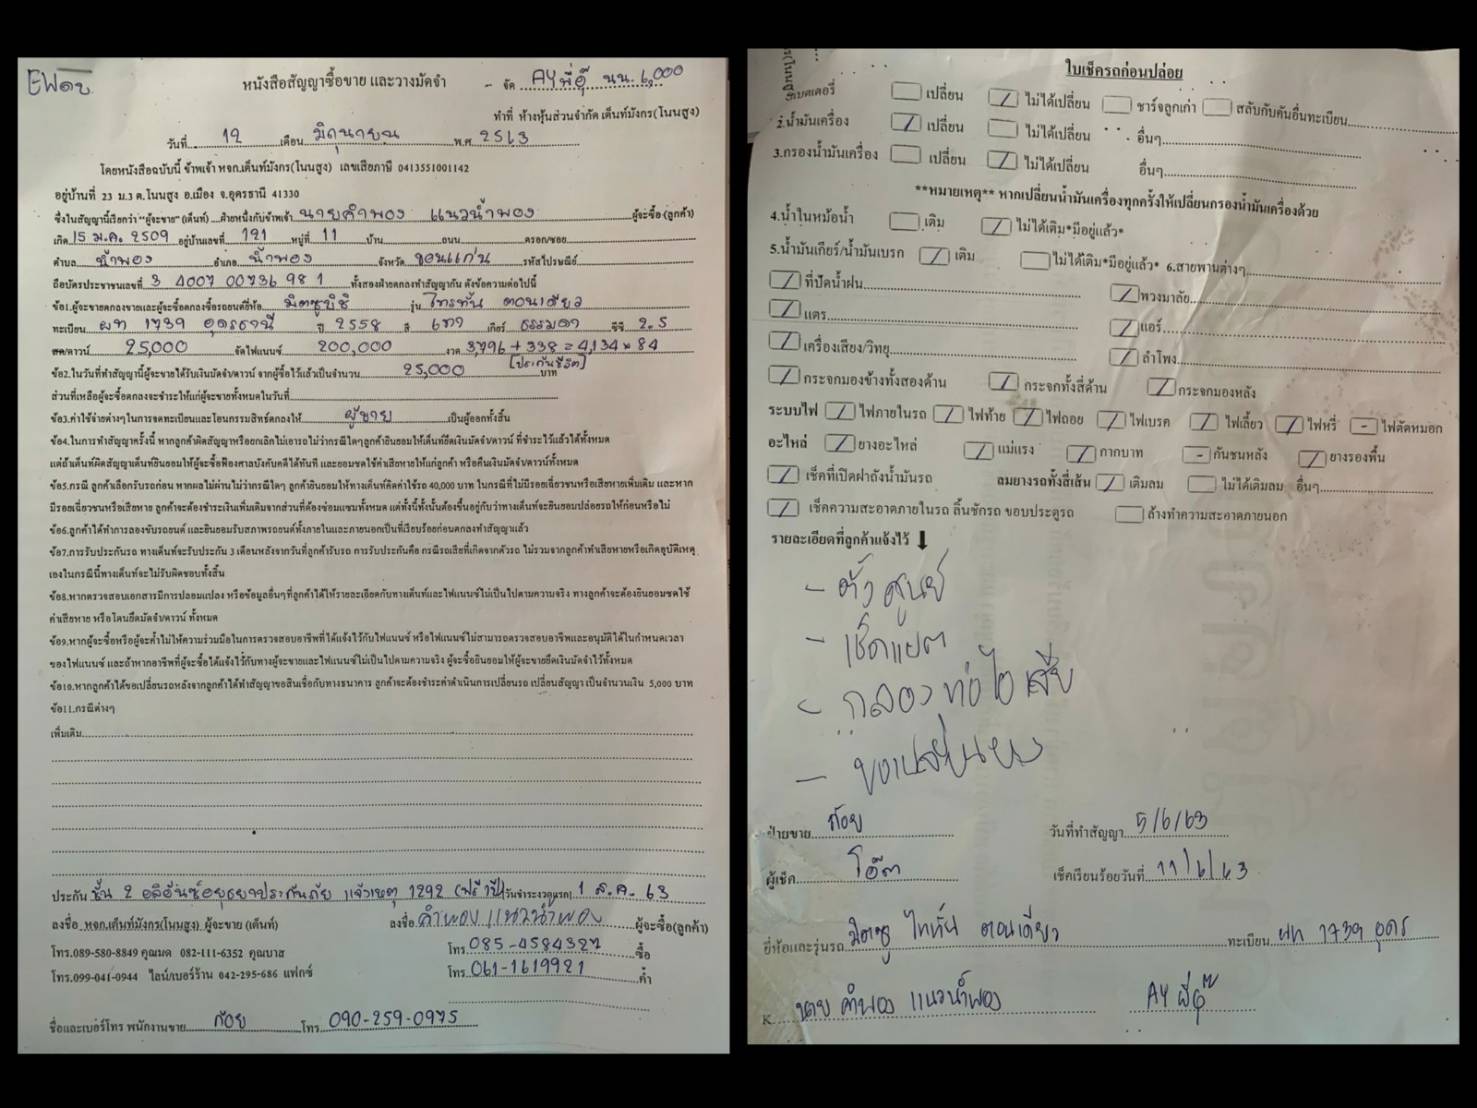 EW๑๖
หนังสือสัญญาซื้อขาย และวางมัดจำ - จัด AY พี่ตุ๊ นน. 6,000
ทำที่ ห้างหุ้นส่วนจำกัด เต็นท์มังกร(โนนสูง)
วันที่ 12 เดือน มิถุนายน พ.ศ. 2563
โดยหนังสือฉบับนี้ ข้าพเจ้า หจก.เต็นท์มังกร(โนนสูง) เลขเสียภาษี 0413551001142
อยู่บ้านที่ 23 ม.3 ต.โนนสูง อ.เมือง จ.อุดรธานี 41330
ซึ่งในสัญญานี้เรียกว่า "ผู้จะขาย" (เต็นท์) ...ฝ่ายหนึ่งกับข้าพเจ้า นายคำพอง แนวน้ำพอง ผู้จะซื้อ (ลูกค้า)
เกิด 15 ม.ค. 2509 อยู่บ้านเลขที่ 121 หมู่ที่ 11 บ้าน ถนน ตรอก/ซอย
ตำบล น้ำพอง อำเภอ น้ำพอง จังหวัด ขอนแก่น รหัสไปรษณีย์
ถือบัตรประชาชนเลขที่ 3 4007 00736 98 1 ทั้งสองฝ่ายตกลงทำสัญญากัน ดังข้อความต่อไปนี้
ข้อ1.ผู้จะขายตกลงขายและผู้จะซื้อตกลงซื้อรถยนต์ยี่ห้อ มิตซูบิชิ รุ่น ไทรทัน ตอนเดียว
ทะเบียน ผท 1739 อุดรธานี ปี 2558 สี เทา เกียร์ ธรรมดา ซีซี 2.5
สด/ดาวน์ 25,000 จัดไฟแนนซ์ 200,000 งวด 3,796 + 338 = 4,134 × 84
[ประกันชีวิต]
ข้อ2.ในวันที่ทำสัญญานี้ผู้จะขายได้รับเงินมัดจำ/ดาวน์ จากผู้ซื้อไว้แล้วเป็นจำนวน 25,000 บาท
ส่วนที่เหลือผู้จะซื้อตกลงจะชำระให้แก่ผู้จะขายทั้งหมดในวันที่
ข้อ3.ค่าใช้จ่ายต่างๆในการจดทะเบียนและโอนกรรมสิทธ์ตกลงให้ ผู้ขาย เป็นผู้ออกทั้งสิ้น
ข้อ4.ในการทำสัญญาครั้งนี้ หากลูกค้าผิดสัญญาหรือยกเลิกไม่เอารถไม่ว่ากรณีใดๆลูกค้ายินยอมให้เต็นท์ยึดเงินมัดจำ/ดาวน์ ที่ชำระไว้แล้วได้ทั้งหมด
แต่ถ้าเต็นท์ผิดสัญญาเต็นท์ยินยอมให้ผู้จะซื้อฟ้องศาลบังคับคดีได้ทันที และยอมชดใช้ค่าเสียหายให้แก่ลูกค้า หรือคืนเงินมัดจำ/ดาวน์ทั้งหมด
ข้อ5.กรณี ลูกค้าเลือกรับรถก่อน หากผลไม่ผ่านไม่ว่ากรณีใดๆ ลูกค้ายินยอมให้ทางเต็นท์คิดค่าใช้รถ 40,000 บาท ในกรณีที่ไม่มีรอยเฉี่ยวชนหรือเสียหายเพิ่มเติม และหาก
มีรอยเฉี่ยวชนหรือเสียหาย ลูกค้าจะต้องชำระเงินเพิ่มเติมจากส่วนที่ต้องซ่อมแซมทั้งหมด แต่ทั้งนี้ทั้งนั้นต้องขึ้นอยู่กับว่าทางเต็นท์จะยินยอมปล่อยรถให้ก่อนหรือไม่
ข้อ6.ลูกค้าได้ทำการลองขับรถยนต์ และยินยอมรับสภาพรถยนต์ทั้งภายในและภายนอกเป็นที่เรียบร้อยก่อนตกลงทำสัญญาแล้ว
ข้อ7.การรับประกันรถ ทางเต็นท์จะรับประกัน 3 เดือนหลังจากวันที่ลูกค้ารับรถ การรับประกันคือ กรณีรถเสียที่เกิดจากตัวรถ ไม่รวมจากลูกค้าทำเสียหายหรือเกิดอุบัติเหตุ
เองในกรณีนี้ทางเต็นท์จะไม่รับผิดชอบทั้งสิ้น
ข้อ8.หากตรวจสอบเอกสารมีการปลอมแปลง หรือข้อมูลอื่นๆที่ลูกค้าได้ให้รายละเอียดกับทางเต็นท์และไฟแนนซ์ไม่เป็นไปตามความจริง ทางลูกค้าจะต้องยินยอมชดใช้
ค่าเสียหาย หรือโดนยึดมัดจำ/ดาวน์ ทั้งหมด
ข้อ9.หากผู้จะซื้อหรือผู้จะค้ำไม่ให้ความร่วมมือในการตรวจสอบอาชีพที่ได้แจ้งไว้กับไฟแนนซ์ หรือไฟแนนซ์ไม่สามารถตรวจสอบอาชีพและอนุมัติได้ในกำหนดเวลา
ของไฟแนนซ์ และถ้าหากอาชีพที่ผู้จะซื้อได้แจ้งไว้กับทางผู้จะขายและไฟแนนซ์ไม่เป็นไปตามความจริง ผู้จะซื้อยินยอมให้ผู้จะขายยึดเงินมัดจำไว้ทั้งหมด
ข้อ10.หากลูกค้าได้ขอเปลี่ยนรถหลังจากลูกค้าได้ทำสัญญาขอสินเชื่อกับทางธนาคาร ลูกค้าจะต้องชำระค่าดำเนินการเปลี่ยนรถ เปลี่ยนสัญญา เป็นจำนวนเงิน 5,000 บาท
ข้อ11.กรณีต่างๆ
เพิ่มเติม
ประกัน ชั้น 2 อลิอันซ์อยุธยาประกันภัย แจ้งเหตุ 1292 (ฟรี 1ปี) วันชำระงวดแรก 1 ส.ค. 63
ลงชื่อ หจก.เต็นท์มังกร(โนนสูง) ผู้จะขาย (เต็นท์) ลงชื่อ คำพอง แนวน้ำพอง ผู้จะซื้อ(ลูกค้า)
โทร.089-580-8849 คุณมด 082-111-6352 คุณบาส โทร. 085-4584327 ซื้อ
โทร.099-041-0944 ไลน์/เบอร์ร้าน 042-295-686 แฟกซ์ โทร. 061-1619921 ค้ำ
ชื่อและเบอร์โทร พนักงานขาย ก้อย โทร. 090-259-0975
ใบเช็ครถก่อนปล่อย
แบตเตอรี่ เปลี่ยน / ไม่ได้เปลี่ยน ชาร์จลูกเก่า สลับกับคันอื่นทะเบียน
2.น้ำมันเครื่อง / เปลี่ยน ไม่ได้เปลี่ยน อื่นๆ
3.กรองน้ำมันเครื่อง เปลี่ยน / ไม่ได้เปลี่ยน อื่นๆ
**หมายเหตุ** หากเปลี่ยนน้ำมันเครื่องทุกครั้งให้เปลี่ยนกรองน้ำมันเครื่องด้วย
4.น้ำในหม้อน้ำ เติม / ไม่ได้เติม*มีอยู่แล้ว*
5.น้ำมันเกียร์/น้ำมันเบรก / เติม ไม่ได้เติม*มีอยู่แล้ว* 6.สายพานต่างๆ
/ ที่ปัดน้ำฝน / พวงมาลัย
/ แตร / แอร์
/ เครื่องเสียง/วิทยุ / ลำโพง
/ กระจกมองข้างทั้งสองด้าน / กระจกทั้งสี่ด้าน / กระจกมองหลัง
ระบบไฟ / ไฟภายในรถ / ไฟท้าย / ไฟถอย / ไฟเบรค / ไฟเลี้ยว / ไฟหรี่ - ไฟตัดหมอก
อะไหล่ / ยางอะไหล่ / แม่แรง / กากบาท - กันชนหลัง / ยางรองพื้น
/ เช็คที่เปิดฝาถังน้ำมันรถ ลมยางรถทั้งสี่เส้น / เติมลม ไม่ได้เติมลม อื่นๆ
/ เช็คความสะอาดภายในรถ ลิ้นชักรถ ขอบประตูรถ ล้างทำความสะอาดภายนอก
รายละเอียดที่ลูกค้าแจ้งไว้
- ตั้งศูนย์
- เช็คแบต
- กลองท่อไอเสีย
- ขอเปลี่ยนยาง
ฝ่ายขาย ก้อย วันที่ทำสัญญา 5/6/63
ผู้เช็ค โอ๊ต เช็คเรียบร้อยวันที่ 11/6/63
ยี่ห้อและรุ่นรถ มิตซู ไททัน ตอนเดียว ทะเบียน ผท 1739 อุดร
K. นาย คำพอง แนวน้ำพอง AY พี่ตุ๊